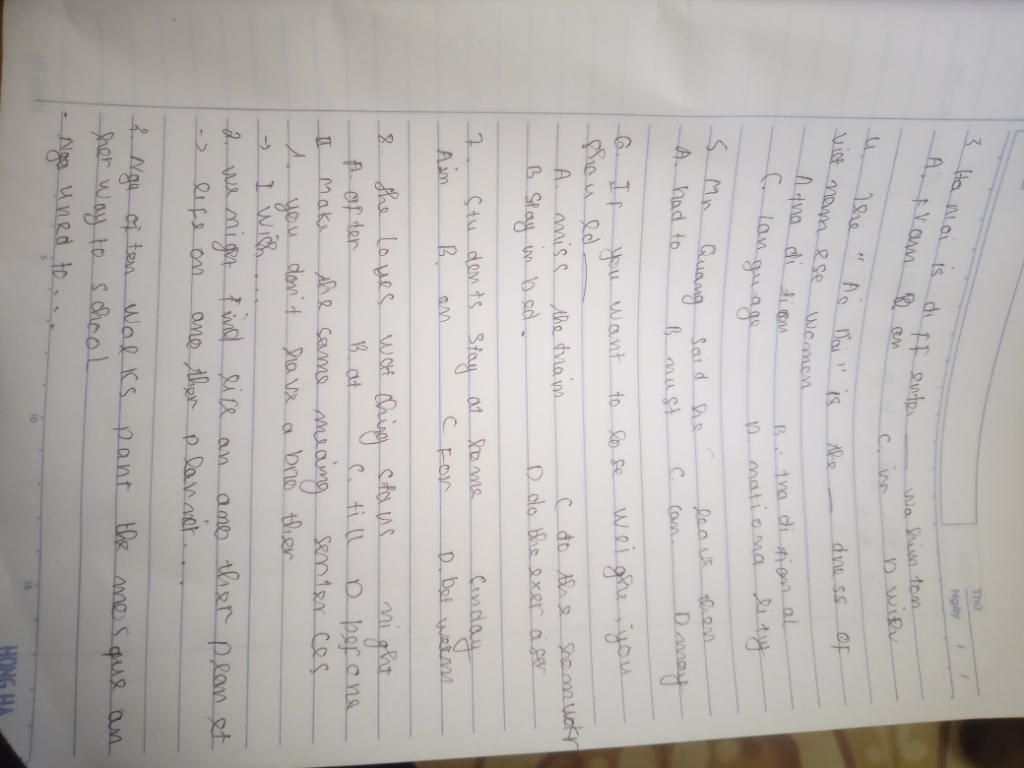 Thứ
Ngày / /
3 Ha noi is diff ente ___ wa hinton
A. fram B on C. in D with
4. The "Áo Dài" is the ___ dress of
viet nam ese women
A tra di tion B. tra di tional
C. language D. nationa lity
5 Mr Quang said he ___ leave then
A. had to B. must C can D may
6. If you want to lose weight, you
A. miss the train C do the
B stay in bed. D do the
7. Stu dents stay at home Sunday
A in B. on C For D. bet ween
8. She loves wat ching stars night
A. of ten B at C. till D be fone
II Make the same meaing senten ces
1. you don't have a bro ther
-> I wish....
2. we might find life on ano ther plan et
-> life on ano ther planit...
1. Nga of ten walks past the mosque on
her way to school
- Nga used to....
HONG HA